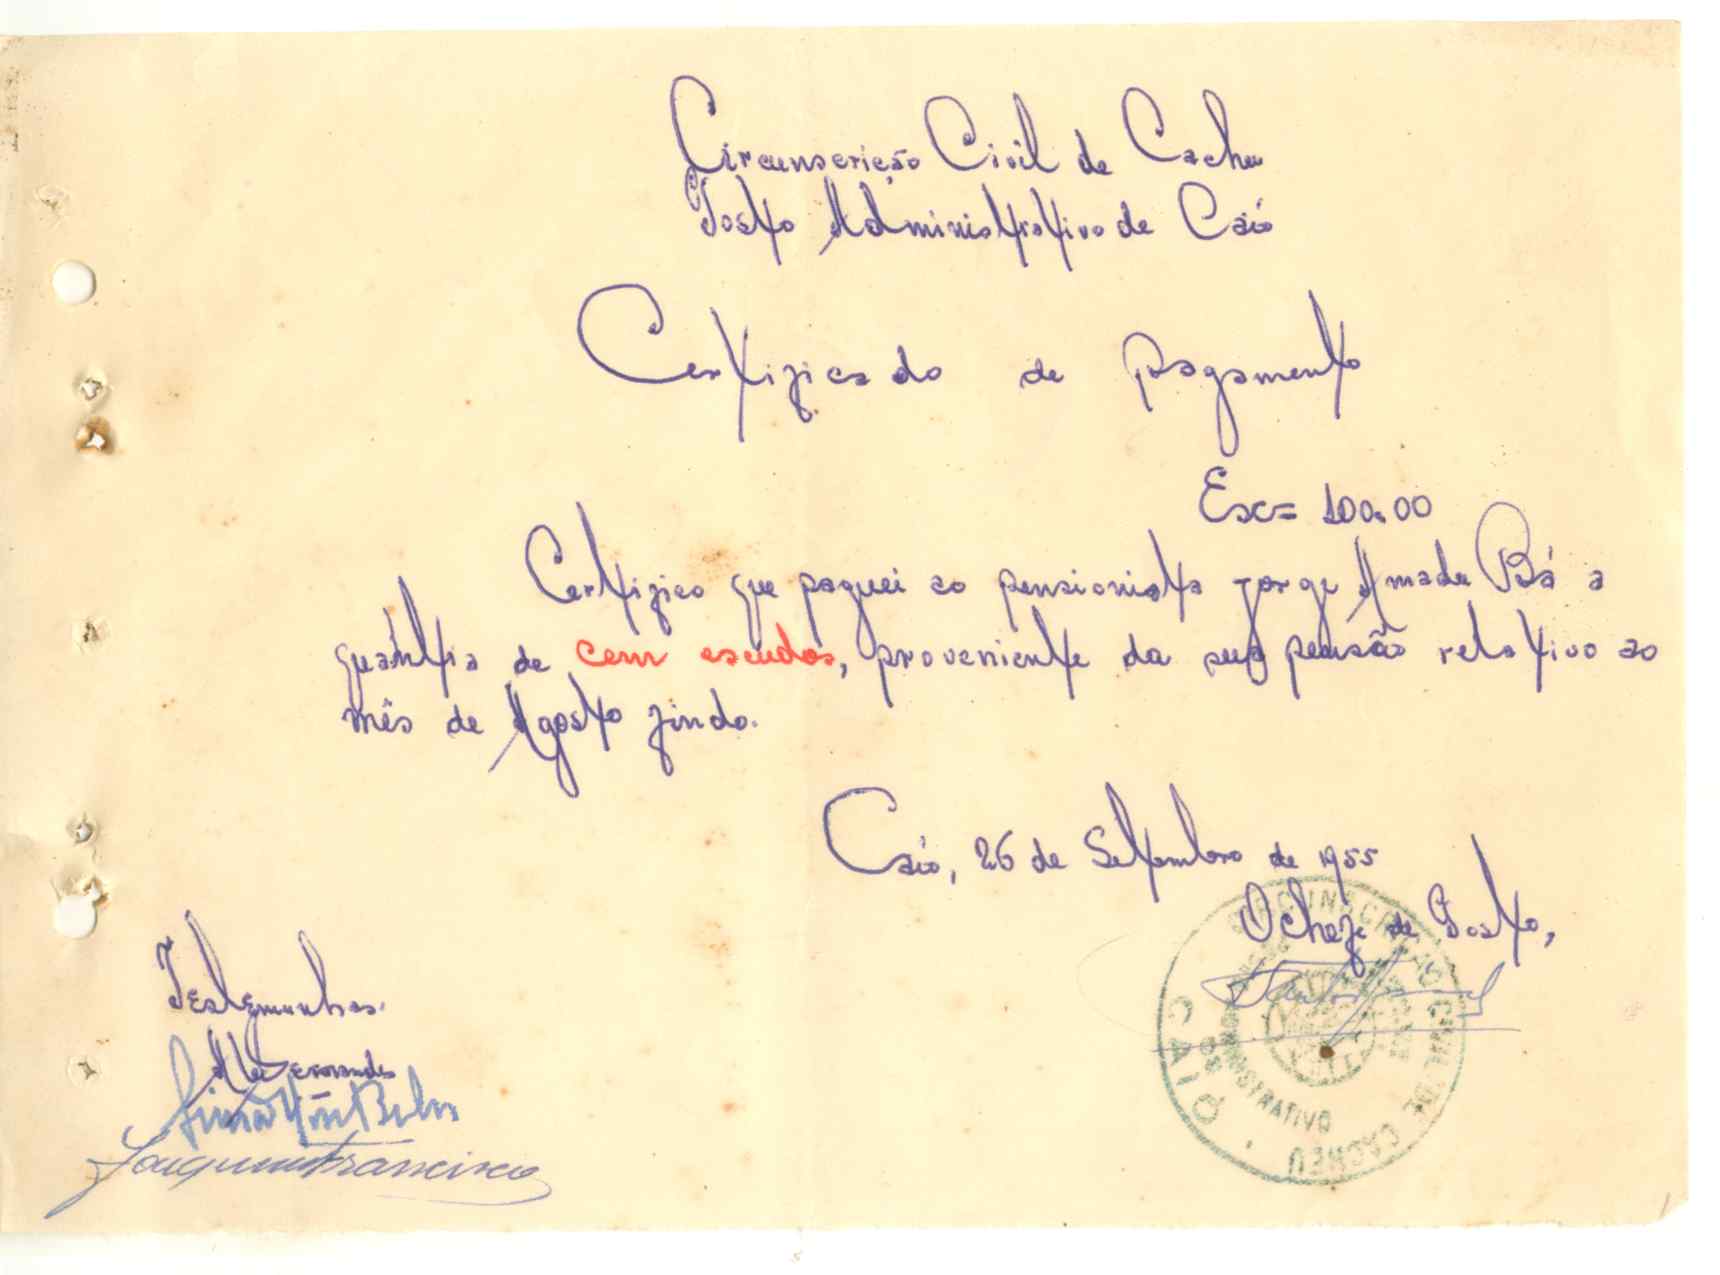 Circunscrição Civil de Cacheu
Posto Administrativo de Caió
Certificado de pagamento
Esc= 100.00
Certifico que paguei ao pensionista Jorge Amadu Bá a
quántia de cem escudos, proveniente da sua pensão relativo ao
mês de Agosto findo.
Caió, 26 de Setembro de 1955
O chefe de Posto,
CIRCUNSCRIÇÃO CIVIL DE CACHEU
ADMINISTRATIVO
DE
CAIÓ
Testemunhas.
Joaquim Francisco